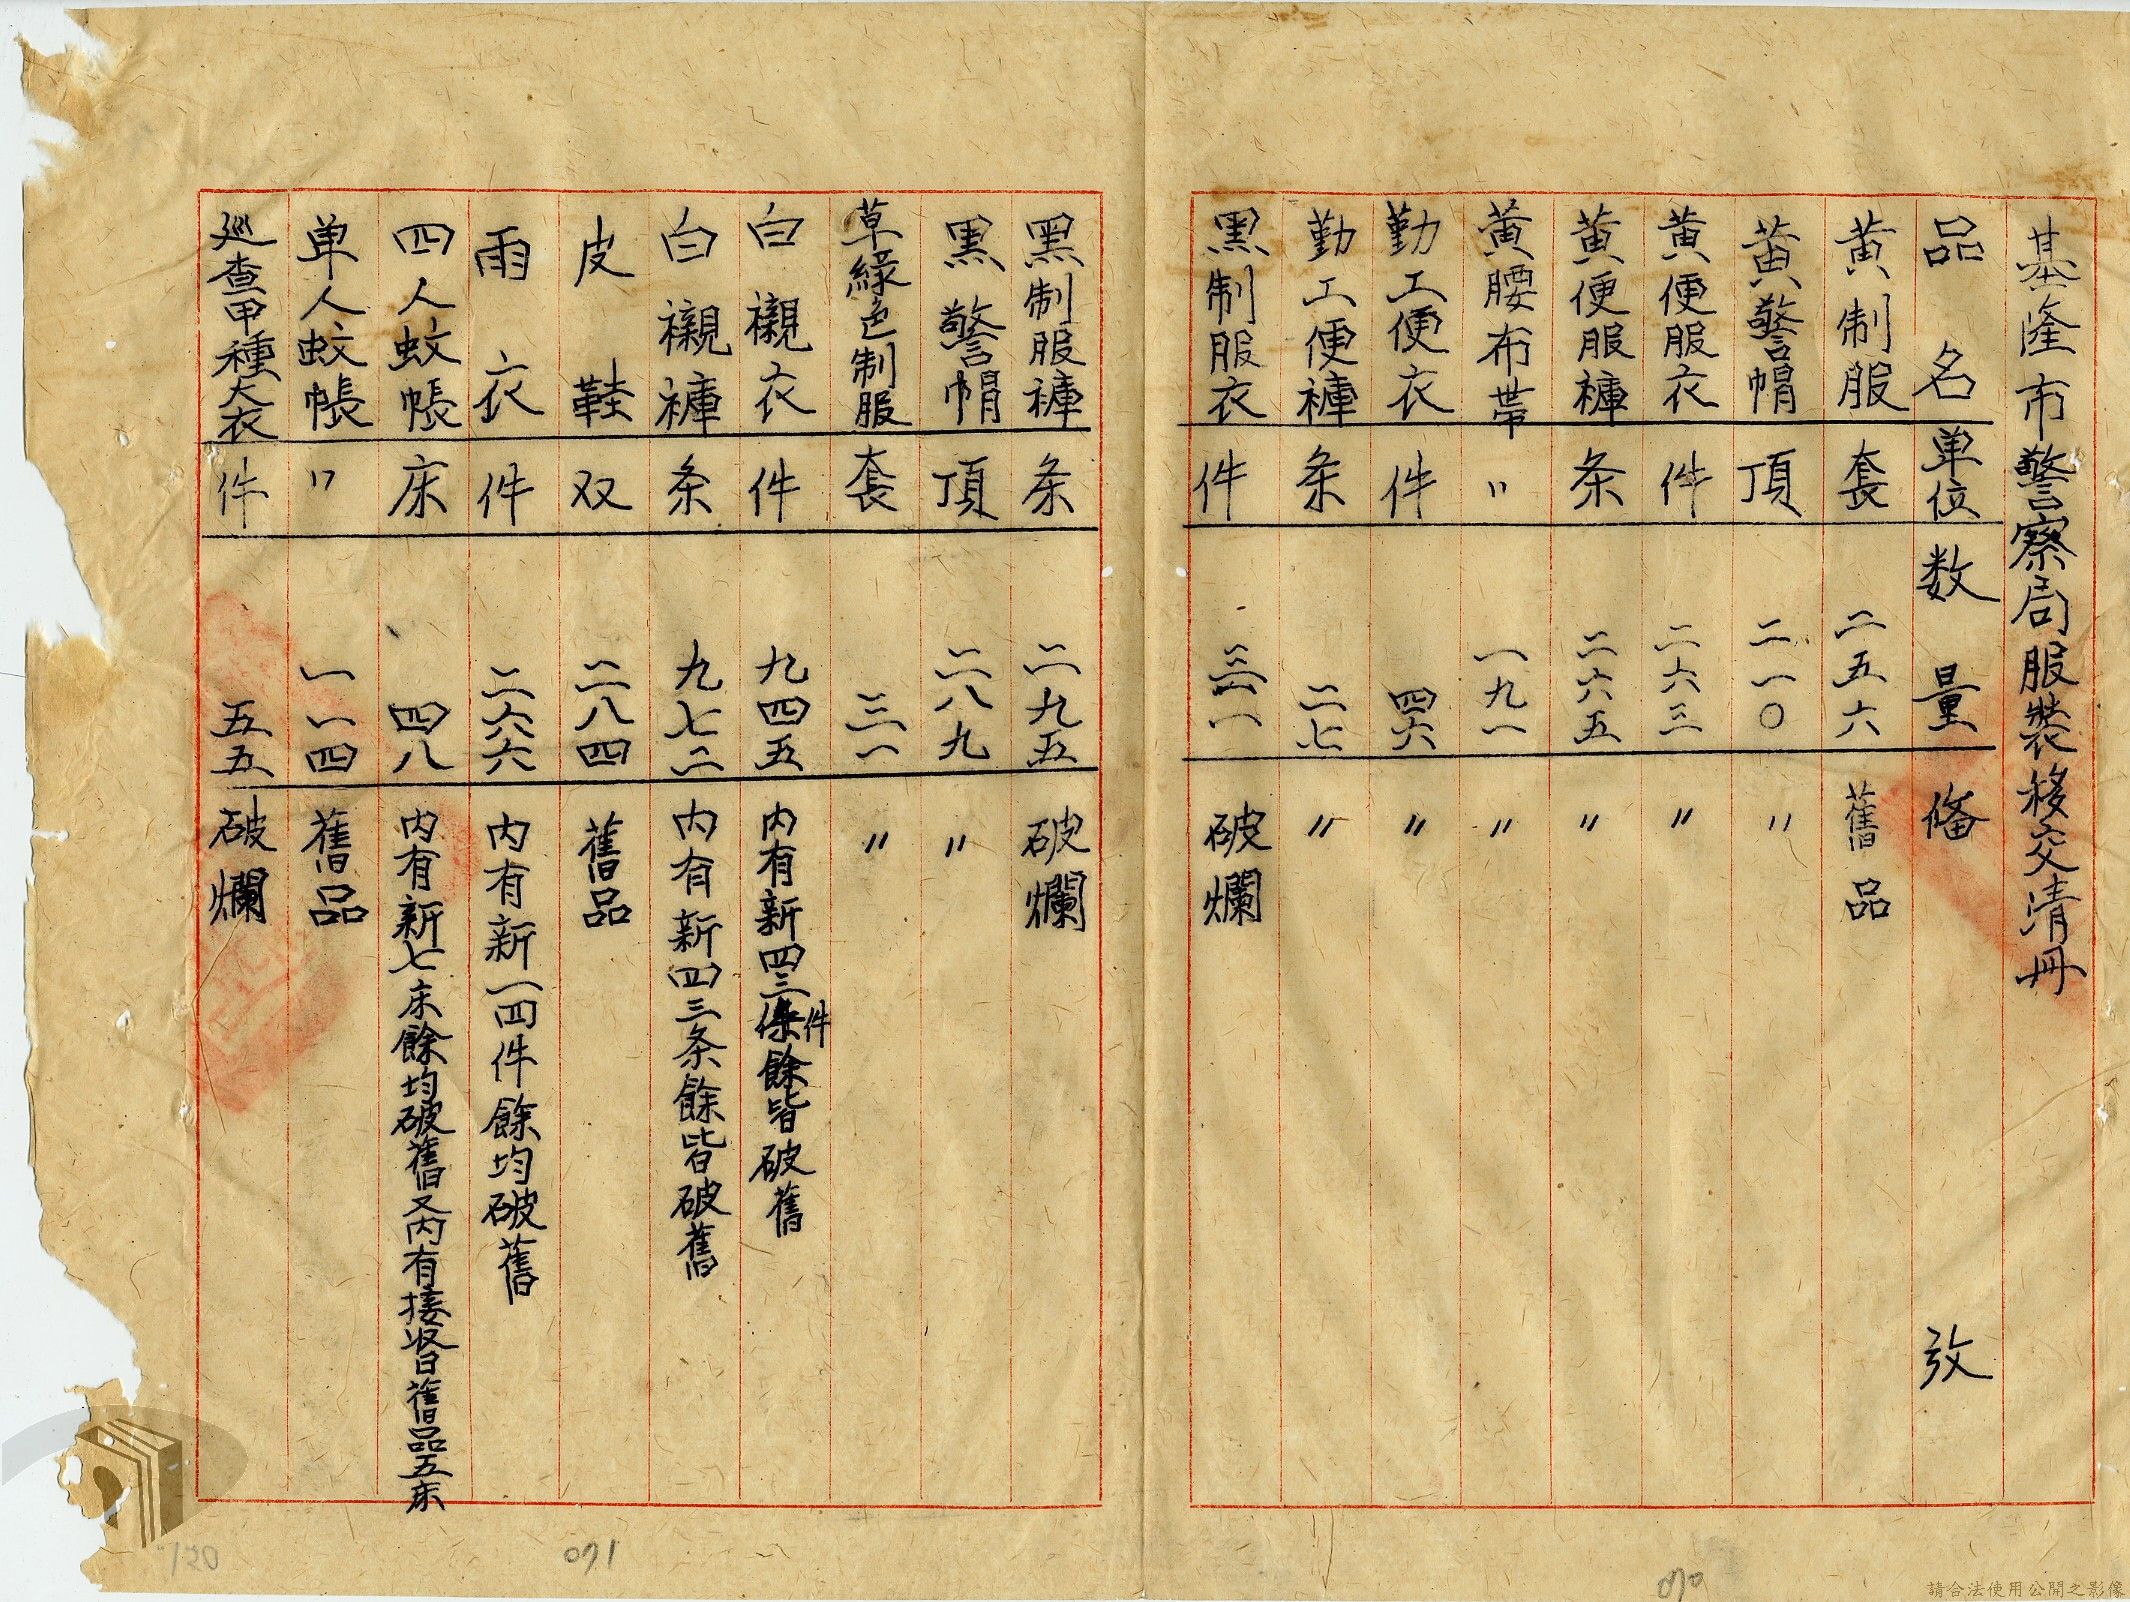 基隆市警察局服裝移交清冊
品名 単位 数量 俻攷
黄制服 套 二五六 舊品
黄警帽 頂 二一〇 〃
黄便服衣 件 二六三 〃
黄便服褲 条 二六五 〃
黄腰布帶 〃 一九一 〃
勤工便衣 件 四六 〃
勤工便褲 条 二七 〃
黑制服衣 件 三一一 破爛
黑制服褲 条 二九五 破爛
黑警帽 頂 二八九 〃
草綠色制服 套 三一 〃
白襯衣 件 九四五 内有新四三件餘皆破舊
白襯褲 条 九七二 内有新四三条餘皆破舊
皮鞋 双 二八四 舊品
雨衣 件 二六六 内有新一四件餘均破舊
四人蚊帳 床 四八 内有新七床餘均破舊又内有接督舊品五床
单人蚊帳 〃 一一四 舊品
巡查甲種大衣 件 五五 破爛
070
071
120
請合法使用公開之影像